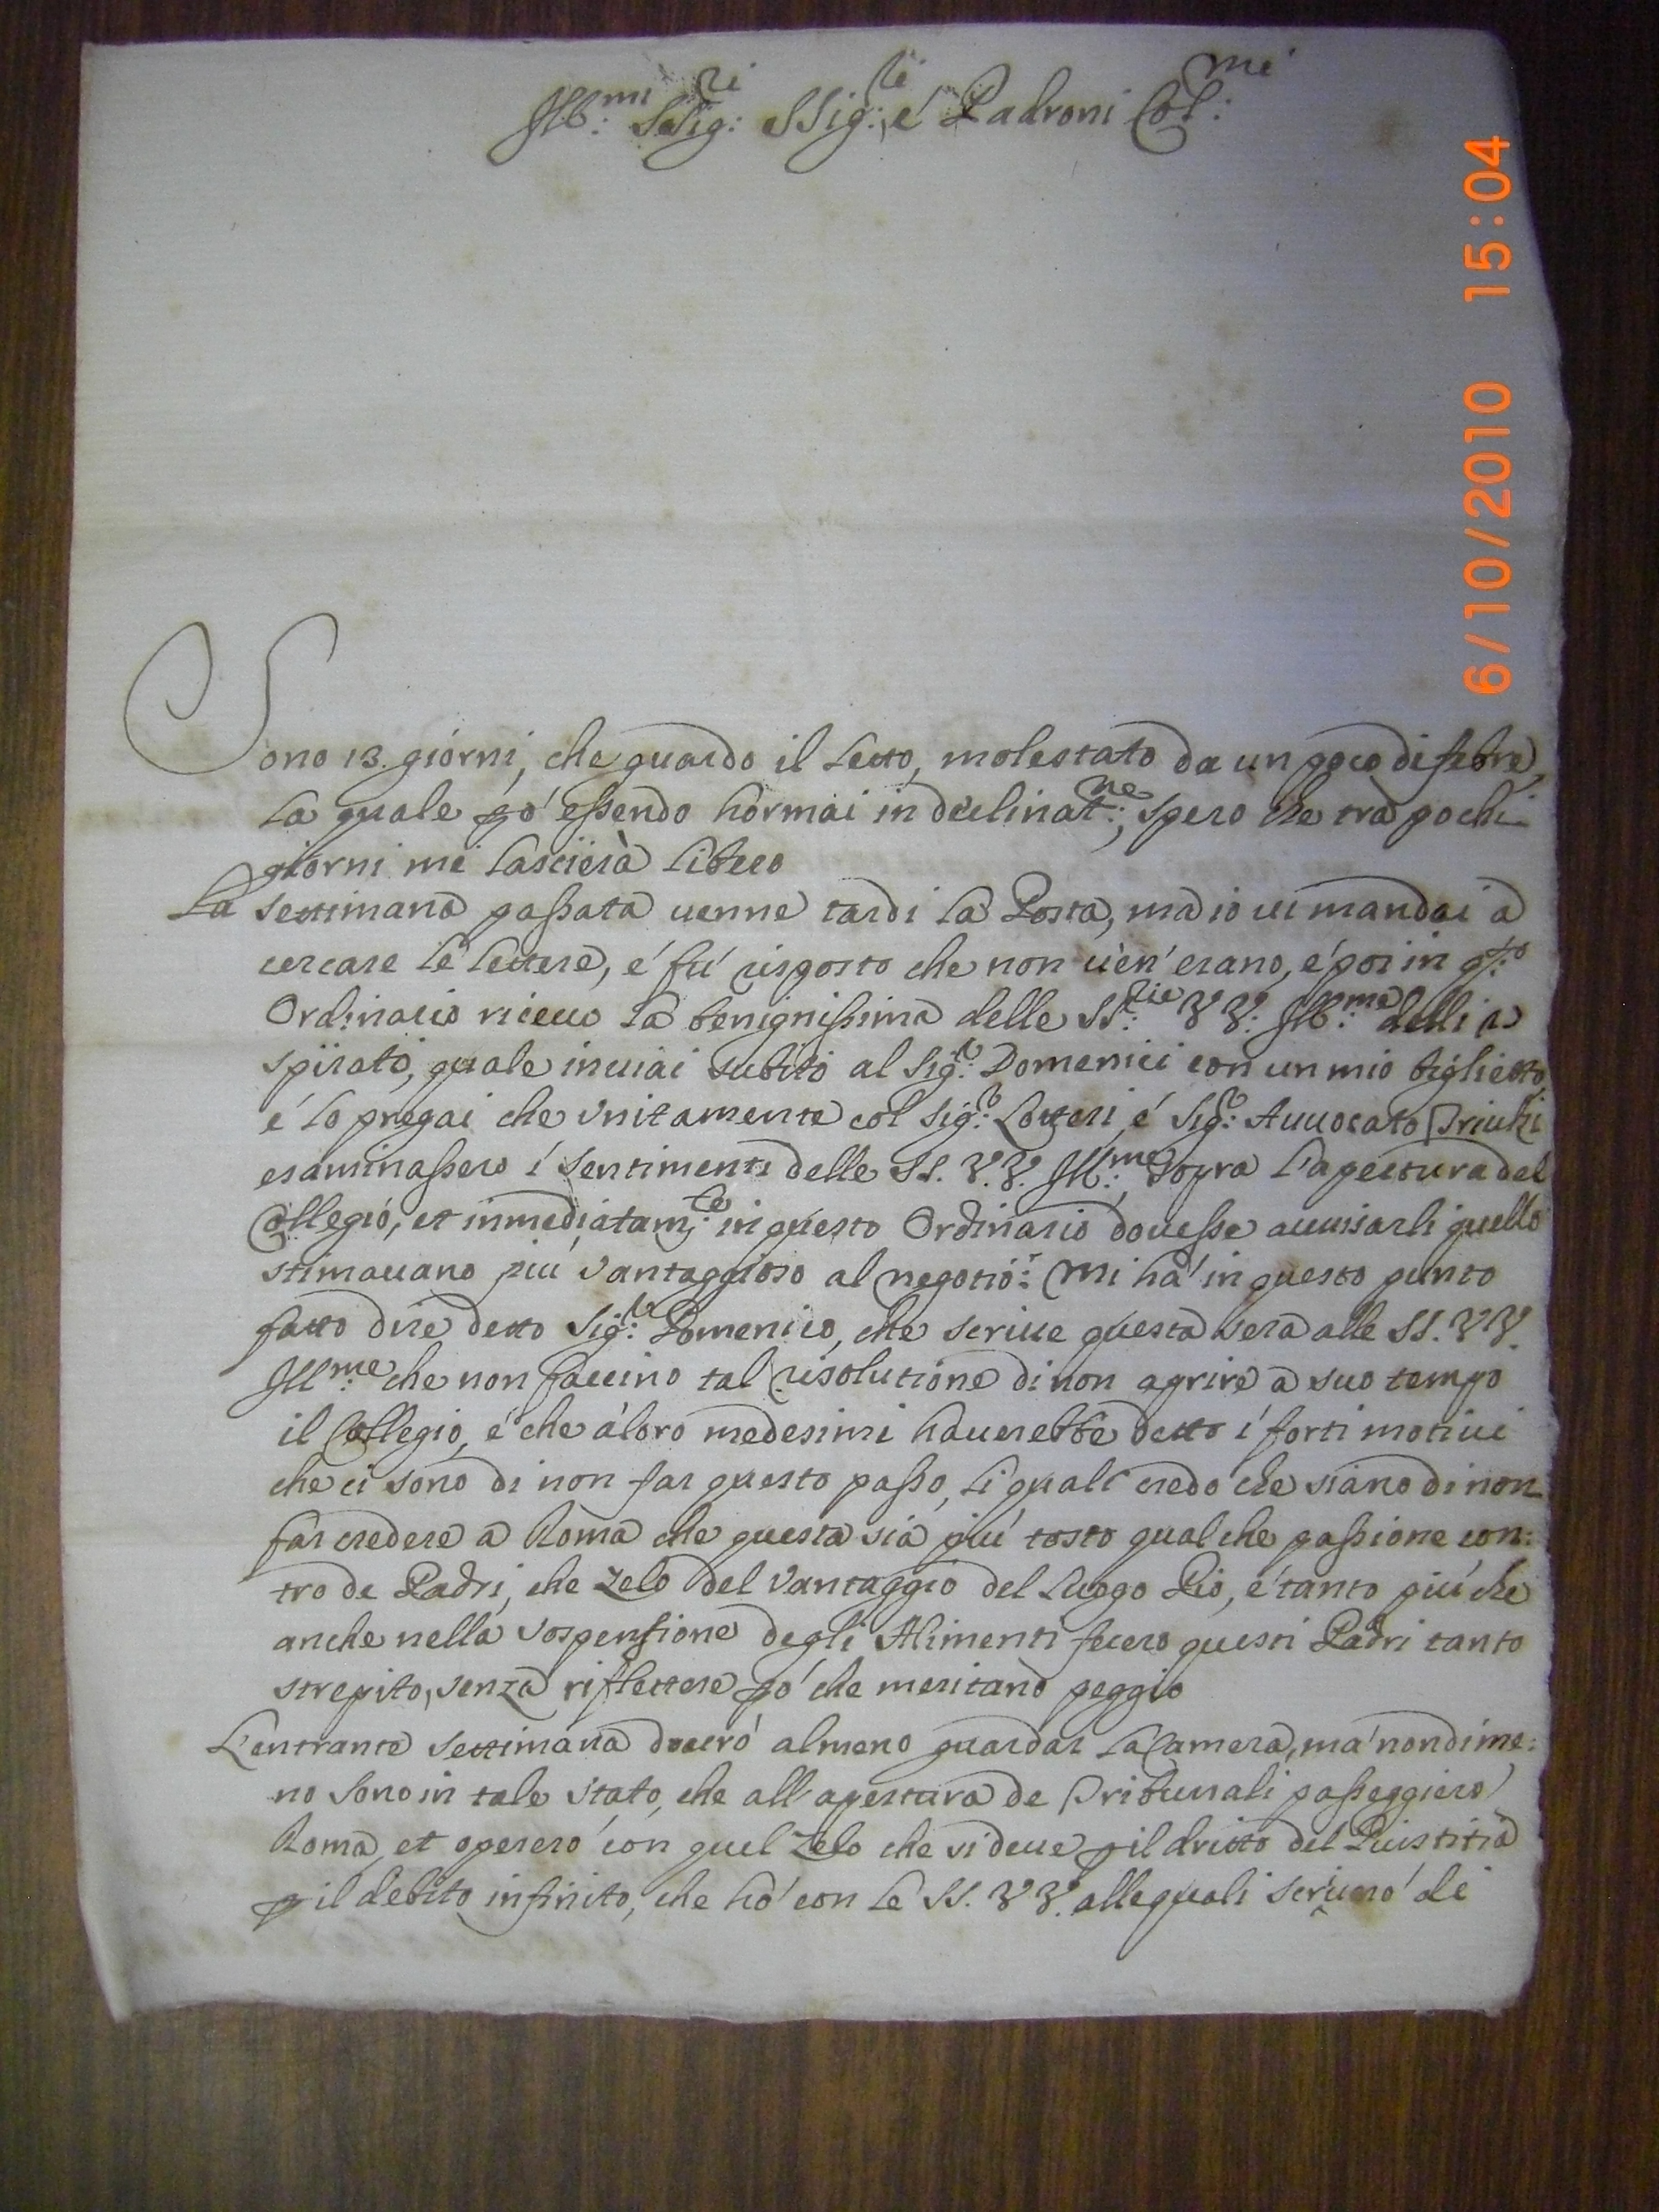 Ill:mi SSig:ri SSig:ri, é Padroni Col:mi
Sono 13. giorni, che guardo il Letto, molestato da un poco di febre,
La quale però essendo hormai in declinat:ne, spero che trà pochi
giorni mi lascierà libero
La settimana passata uenne tardi la Posta, ma io ui mandai à
cercare le lettere, é fú risposto che non uèn'erano, é poi in q:to
Ordinario riceuo la benignissima delle SS:rie VV: Ill:me delli
spirato, quale inuiai subito al Sig:r Domenici con un mio biglietto,
é lo pregai che vnitamente col Sig:r Lotteri, é Sig:r Auuocato
esaminassero i sentimenti delle SS. VV. Ill:me sopra l'apertura del
Collegio, et inmediatam:te in questo Ordinario douesse auuisarli quello
stimauano più vantaggioso al negotio: Mi hà in questo punto
fatto dire detto Sig:r Domenico, che scriue questa sera alle SS. VV.
Ill:me che non faccino tal risolutione di non aprire à suo tempo
il Collegio, é che à loro medesimi hauerebbe detto i forti motiui
che ci sono di non far questo passo, li quali credo che siano di non
far credere à Roma che questa sia più tosto qualche passione con:
tro de Padri, che zelo del vantaggio del Luogo Pio, é tanto più che
anche nella sospensione degli Alimenti fecero questi Padri tanto
strepito, senza riflettere però che meritano peggio
L'entrante settimana douerò almeno guardar la Camera, mà nondime:
no sono in tale stato, che all'apertura de Tribunali passeggierò
Roma, et opererò con quel zelo che si deue per il dritto del Giustitia
per il debito infinito, che hò con le SS. VV. alle quali scriuerò di
6/10/2010 15:04